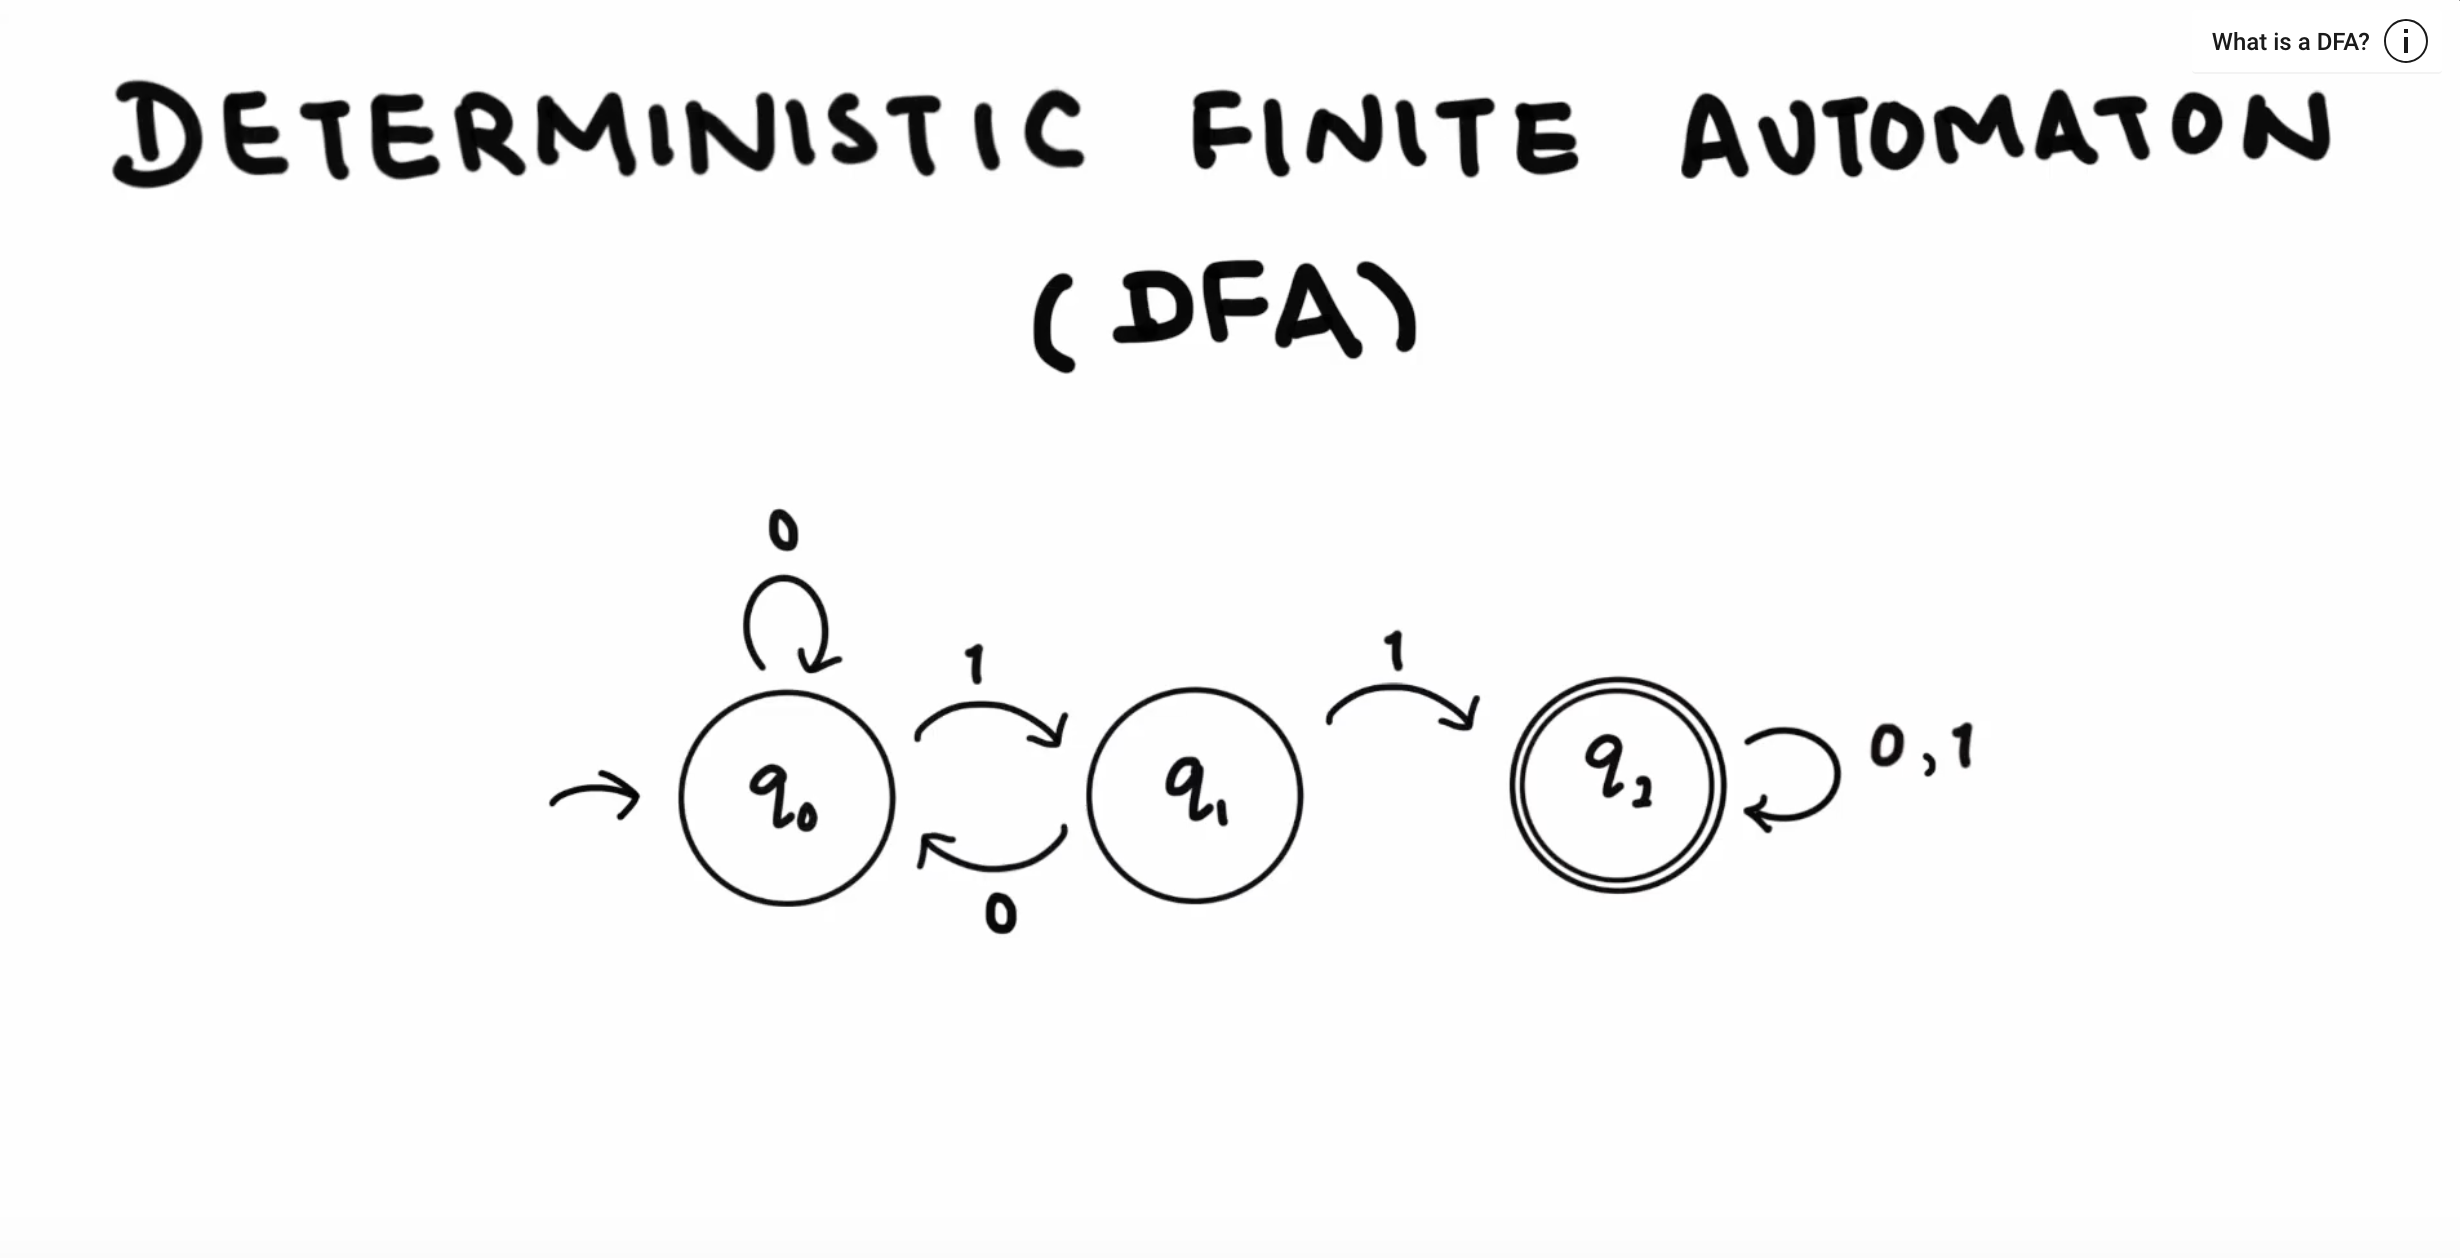 What is a DFA? i
DETERMINISTIC FINITE AUTOMATON
(DFA)
0
1
1
q₀
q₁
q₂
0,1
0